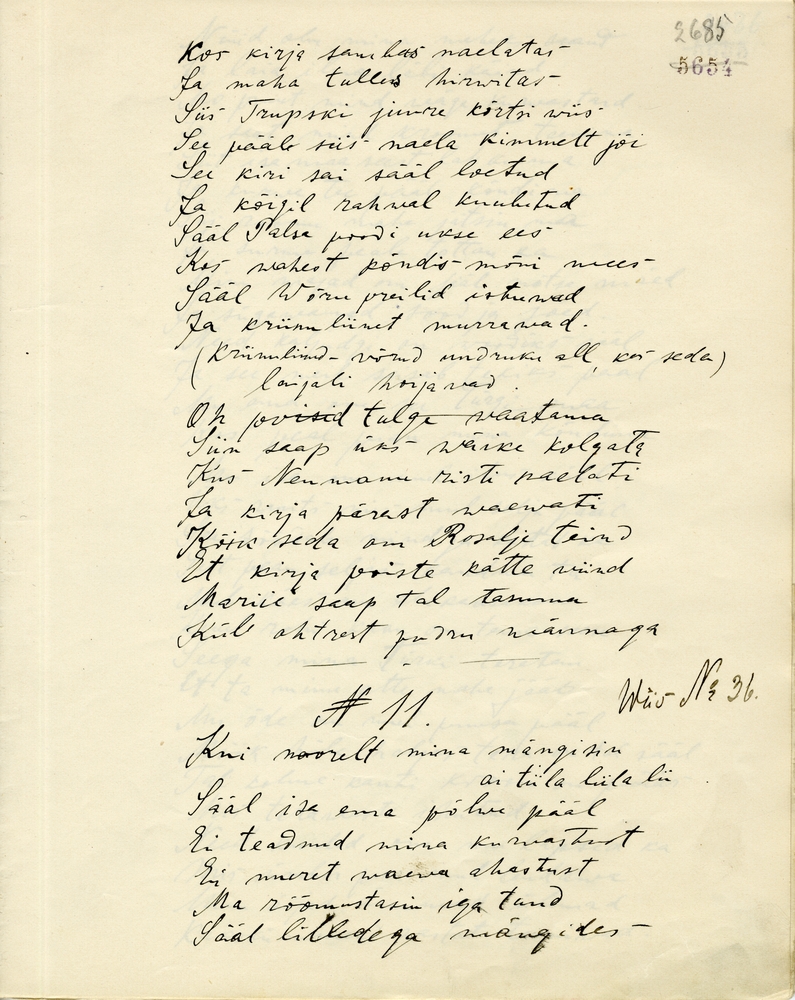 2685
5654
Kos kirja sambas naelatas
Ja maha tulles hirwitas
Siis Trupski juure kõrtsi wiis
See pääle siis naela kimmelt jõi
See kiri sai sääl loetud
Ja kõigil rahwal kuulutud
Sääl Palsa poodi ukse ees
Kos wahest kõndis mõni mees
Sääl Wõru preilid istuwad
Ja kriimuliinet murrawad.
(Kriimuliind- võrud undruku all, kos seda)
laijali hoijavad.
Oh poisid tulge waatama
Siin saap üks wäike kolgata
Kus Neumann risti naelati
Ja kirja pärast waewati
Kõik seda om Rosalje teind
Et kirja poiste kätte wiind
Mariie saap tal tasuma
Küll ohtrest pudru männaga
№ 11.
Wiis № 36.
Kui noorelt mina mängisin
ai tiila liila lii
Sääl isa ema põlwe pääl
Ei teadnud mina kurwastust
Ei muret waewa ahastust
Ma rõõmustasin iga tund
Sääl lilledega mängides